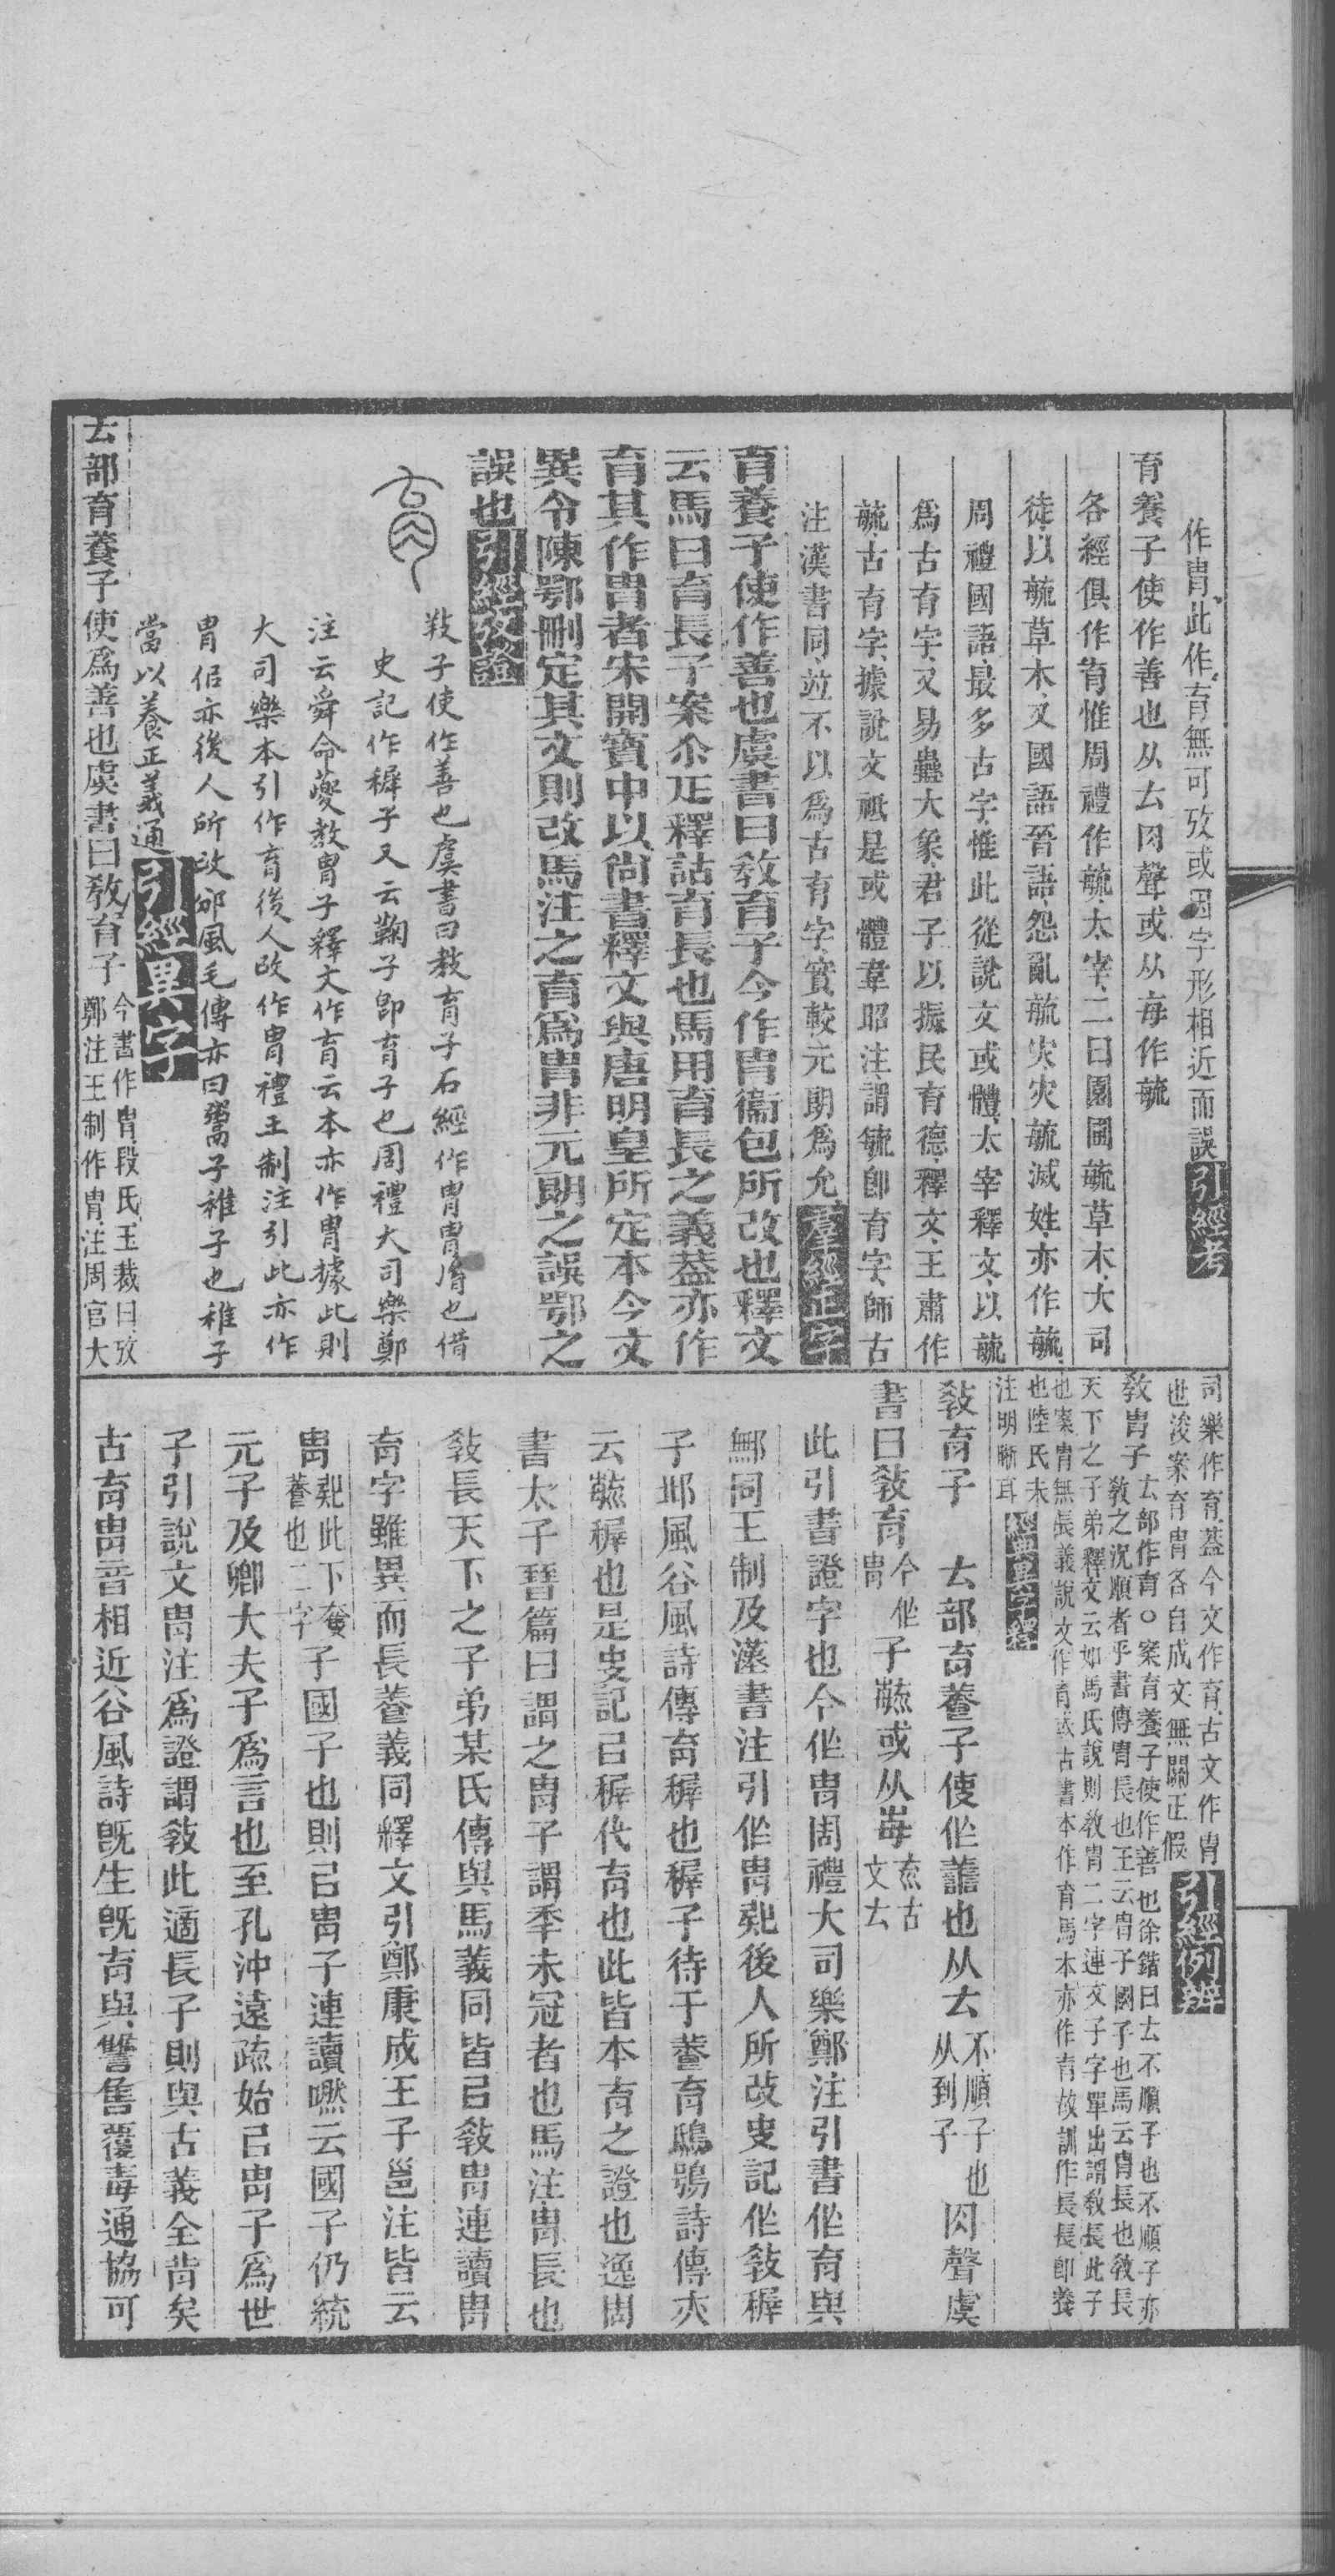 作胄此作育無可攷或因字形相近而誤引經考
育養子使作善也从𠫓肉聲或从每作毓
各經俱作育惟周禮作毓太宰二曰園圃毓草木大司
徒以毓草木又國語晉語怨亂毓灾灾毓滅姓亦作毓
周禮國語最多古字惟此從說文或體太宰釋文以毓
爲古育字又易蠱大象君子以振民育德釋文王肅作
毓古育字據說文祗是或體韋昭注謂毓卽育字師古
注漢書同竝不以爲古育字實較元朗爲允羣經正字
育養子使作善也虞書曰敎育子今作胄衞包所改也釋文
云馬曰育長子案尒疋釋詁育長也馬用育長之義葢亦作
育其作胄者宋開寶中以尚書釋文與唐明皇所定本今文
異令陳鄂刪定其文則改馬注之育爲胄非元朗之誤鄂之
誤也引經攷證
敎子使作善也虞書曰敎育子石經作胄胄肎也借
史記作稺子又云鞠子卽育子也周禮大司樂鄭
注云舜命夔敎胄子釋文作育云本亦作胄據此則
大司樂本引作育後人改作胄禮王制注引此亦作
胄佀亦後人所改邠風毛傳亦曰鬻子稚子也稚子
當以養正義通引經異字
𠫓部育養子使爲善也虞書曰敎育子
今書作胄段氏玉裁曰攷
鄭注王制作胄注周官大
司樂作育葢今文作育古文作胄
也浚案育胄各自成文無關正假引經例辨
敎胄子
𠫓部作育○案育養子使作善也徐鍇曰𠫓不順子也不順子亦
敎之況順者乎書傳胄長也王云胄子國子也馬云胄長也敎長
天下之子弟釋文云如馬氏說則敎胄二字連文子字單出謂敎長此子
也案胄無長義說文作育故古書本作育馬本亦作育故訓作長長卽養
也陸氏未
注明晰耳
敎育子 𠫓部育養子使作善也从𠫓
不順子也
从到子
肉聲虞
書曰敎育
今作
胄
子毓或从每
此引書證字也今作胄周禮大司樂鄭注引書作育與
鄦同王制及漢書注引作胄𠨞後人所改史記作敎稺
子邶風谷風詩傳育稺也稺子待于養育鴟鴞詩傳亦
云毓稺也是史記㠯稺代育也此皆本育之證也逸周
書太子晉篇曰謂之胄子謂秊未冠者也馬注胄長也
敎長天下之子弟某氏傳與馬義同皆㠯敎胄連讀胄
育字雖異而長養義同釋文引鄭康成王子邕注皆云
胄
養也二字
子國子也則㠯胄子連讀嘫云國子仍統
元子及卿大夫子爲言也至孔沖遠疏始㠯胄子爲世
子引說文胄注爲證謂敎此適長子則與古義全背矣
古育胄音相近谷風詩旣生旣育與讐售覆毒通協可